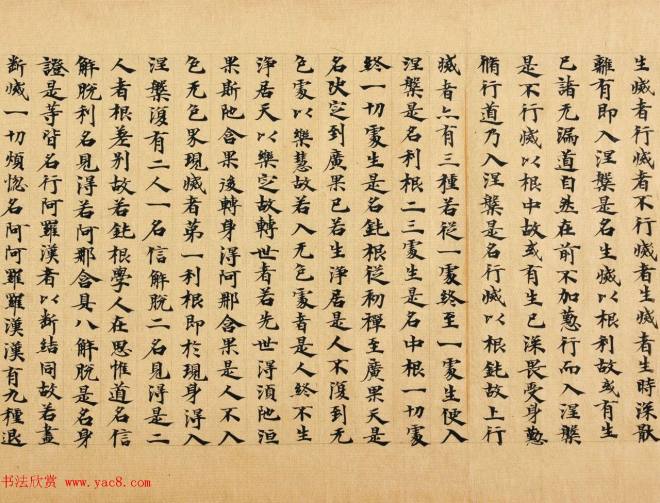 生滅者行滅者不行滅者生滅者生時深猒
離有即入涅槃是名生滅以根利故或有生
已諸无漏道自然在前不加懃行而入涅槃
是不行滅以根中故或有生已深畏受身懃
脩行道乃入涅槃是名行滅以根鈍故上行
滅者亦有三種若從一處終至一處生便入
涅槃是名利根二三處生是名中根一切處
終一切處生是名鈍根從初禪至廣果天是
名決定到廣果已若生淨居是人不復到无
色處以樂慧故若入无色處者是人終不生
淨居天以樂定故轉世者若先世得湏陁洹
果斯陁含果後轉身得阿那含果是人不入
色无色界現滅者第一利根即於現身得入
涅槃復有二人一名信解脫二名見得是二
人者根差別故若鈍根學人在思惟道名信
解脫利名見得若阿那含具八解脫是名身
證是等皆名行阿羅漢者以斷結同故若盡
斷滅一切煩惱名阿阿羅羅漢漢有九種退
书法欣赏 www.yac8.com